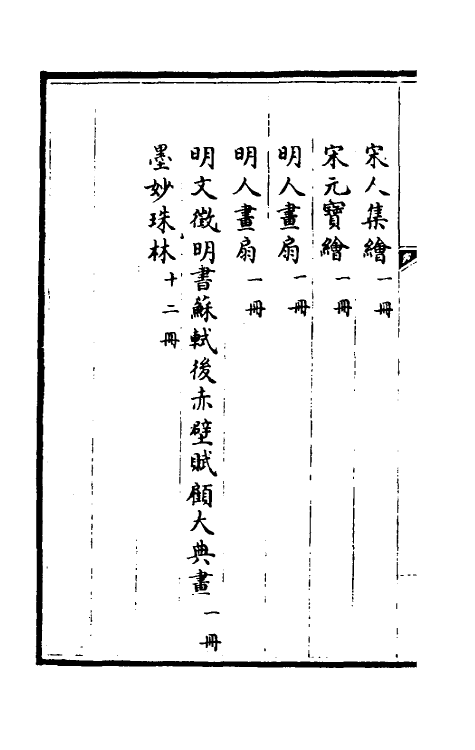 宋人集繪一冊
宋元寶繪一冊
明人畫扇一冊
明人畫扇一冊
明文徵明書蘇軾後赤壁賦顧大典畫一冊
墨妙珠林十二冊